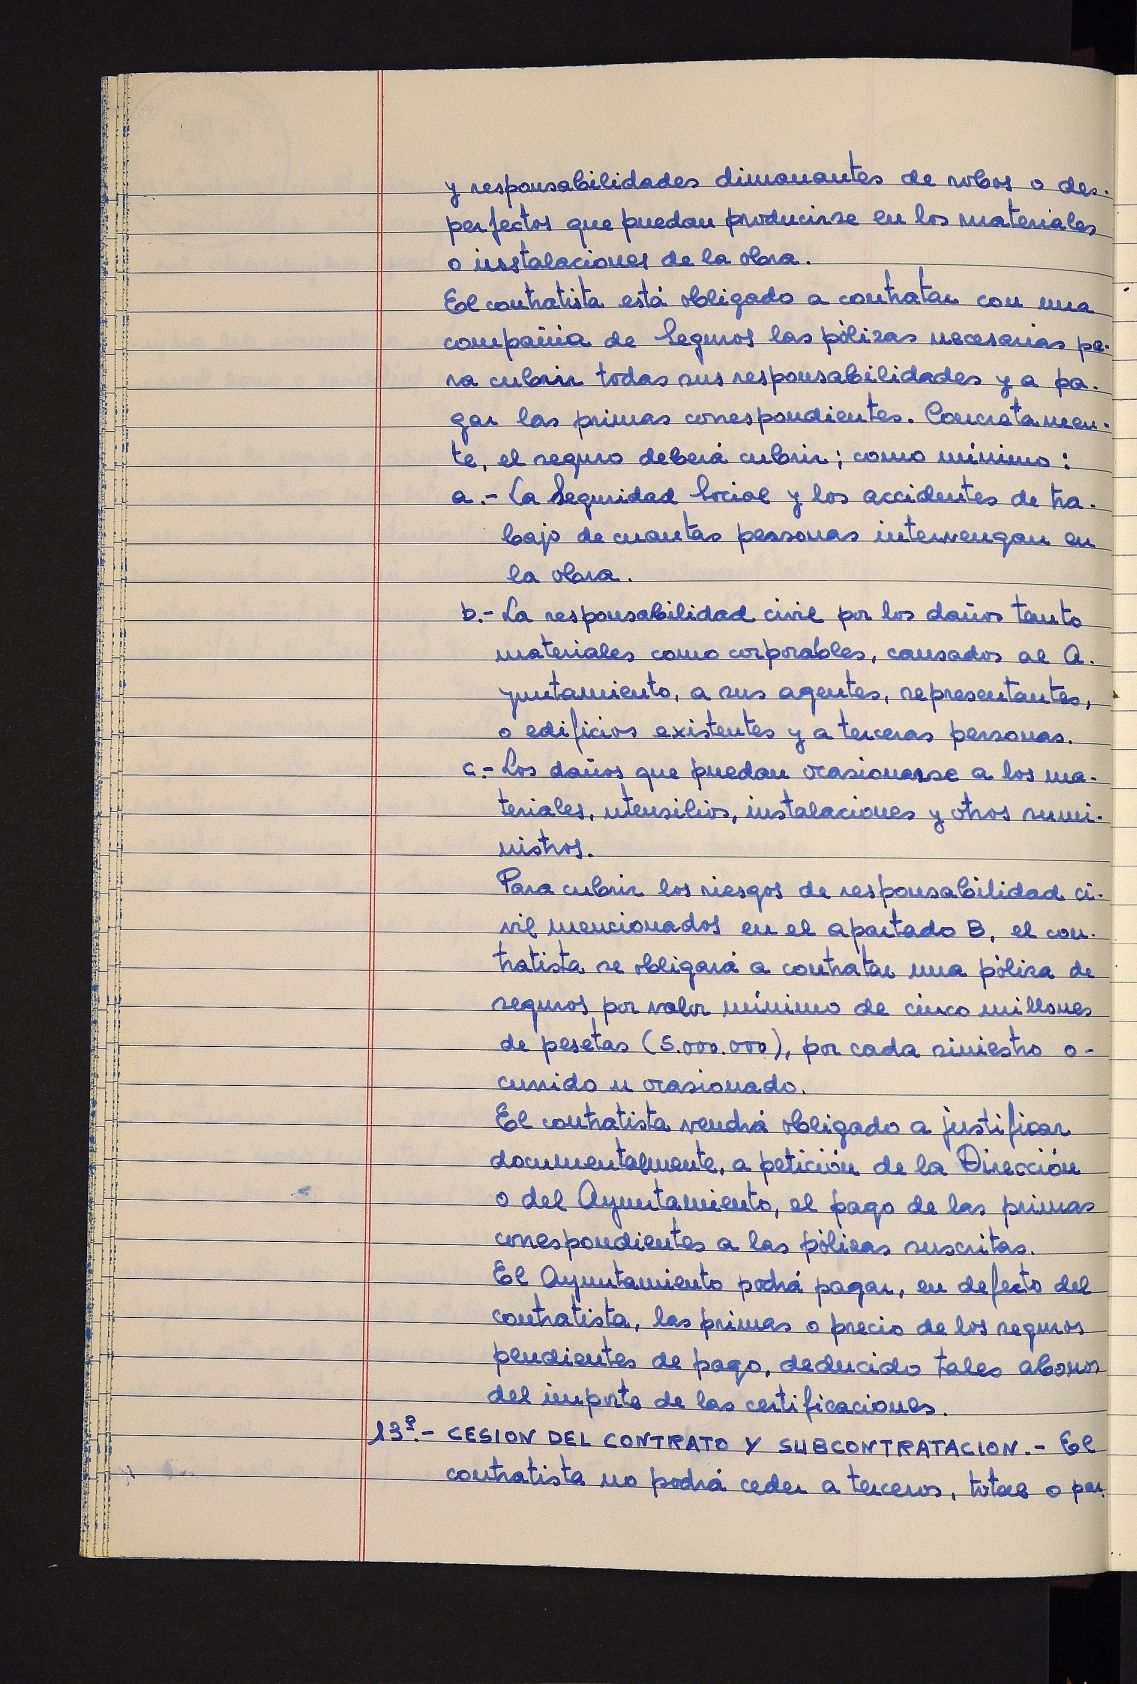 y responsabilidades dimanantes de robos o des-
perfectos que puedan producirse en los materiales
o insstalaciones de la obra.
El contratista está obligado a contratar con una
compañia de Seguros las pólizas necesarias pa-
ra cubrir todas sus responsabilidades y a pa-
gar las primas correspondientes. Concretamen-
te, el seguro deberá cubrir; como mínimo:
a.- La Seguridad Social y los accidentes de tra-
bajo de cuantas personas intervengan en
la obra.
b.- La responsabilidad civil por los daños tanto
materiales como corporables, causados al A-
yuntamiento, a sus agentes, representantes,
o edificios existentes y a terceras personas.
c.- Los daños que puedan ocasionarse a los ma-
teriales, utensilios, instalaciones y otros sumi-
nistros.
Para cubrir los riesgos de responsabilidad ci-
vil mencionados en el apartado B, el con-
tratista se obligará a contratar una póliza de
seguros por valor mínimo de cinco millones
de pesetas (5.000.000), por cada siniestro o-
currido u ocasionado.
El contratista vendrá obligado a justificar
documentalmente, a petición de la Dirección
o del Ayuntamiento, el pago de las primas
correspondientes a las pólizas suscritas.
El Ayuntamiento podrá pagar, en defecto del
contratista, las primas o precio de los seguros
pendientes de pago, deducido tales abonos
del importe de las certificaciones.
13º.- CESION DEL CONTRATO Y SUBCONTRATACION.- El
contratista no podrá ceder a terceros, total o par-